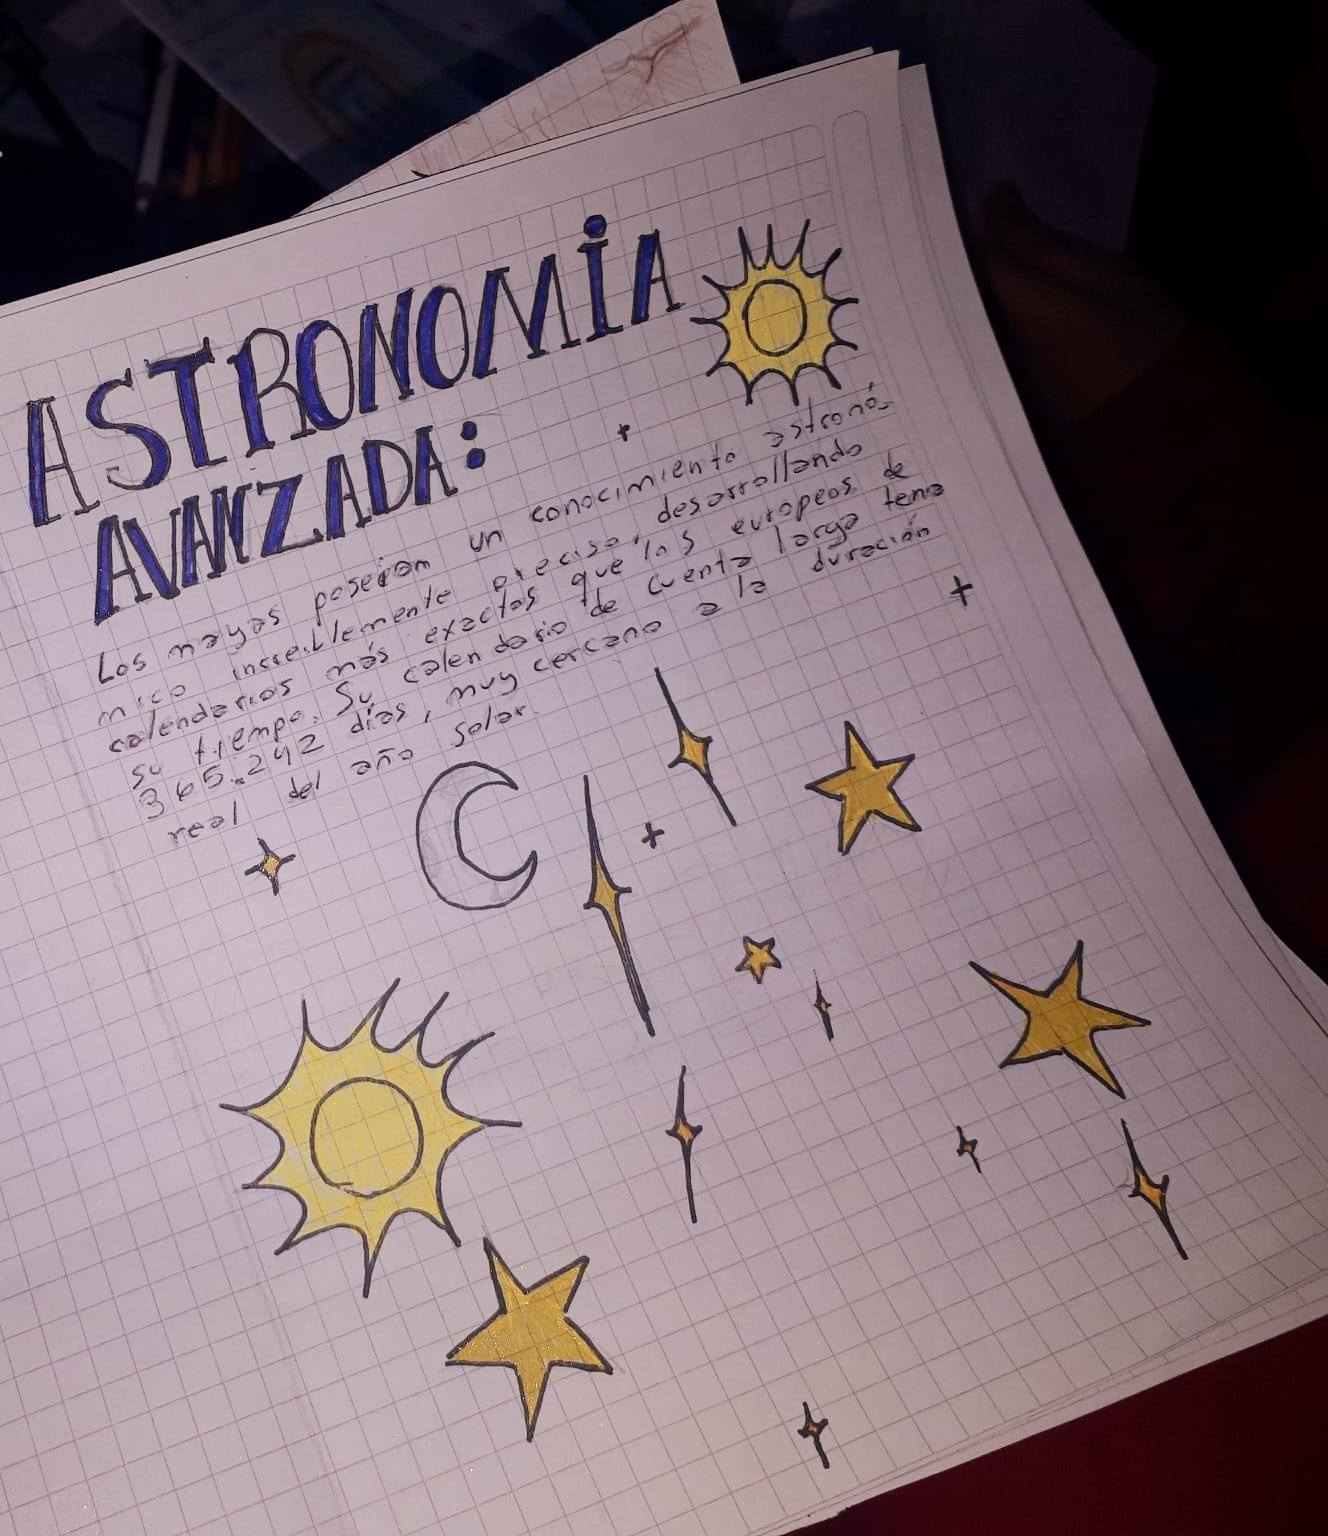 ASTRONOMIA
AVANZADA:
Los mayas poseian un conocimiento astronó-
mico increiblemente preciso, desarrollando
calendarios más exactos que los europeos de
su tiempo. Su calendario de cuenta larga tenia
365.242 dias, muy cercano a la duración
real del año solar.